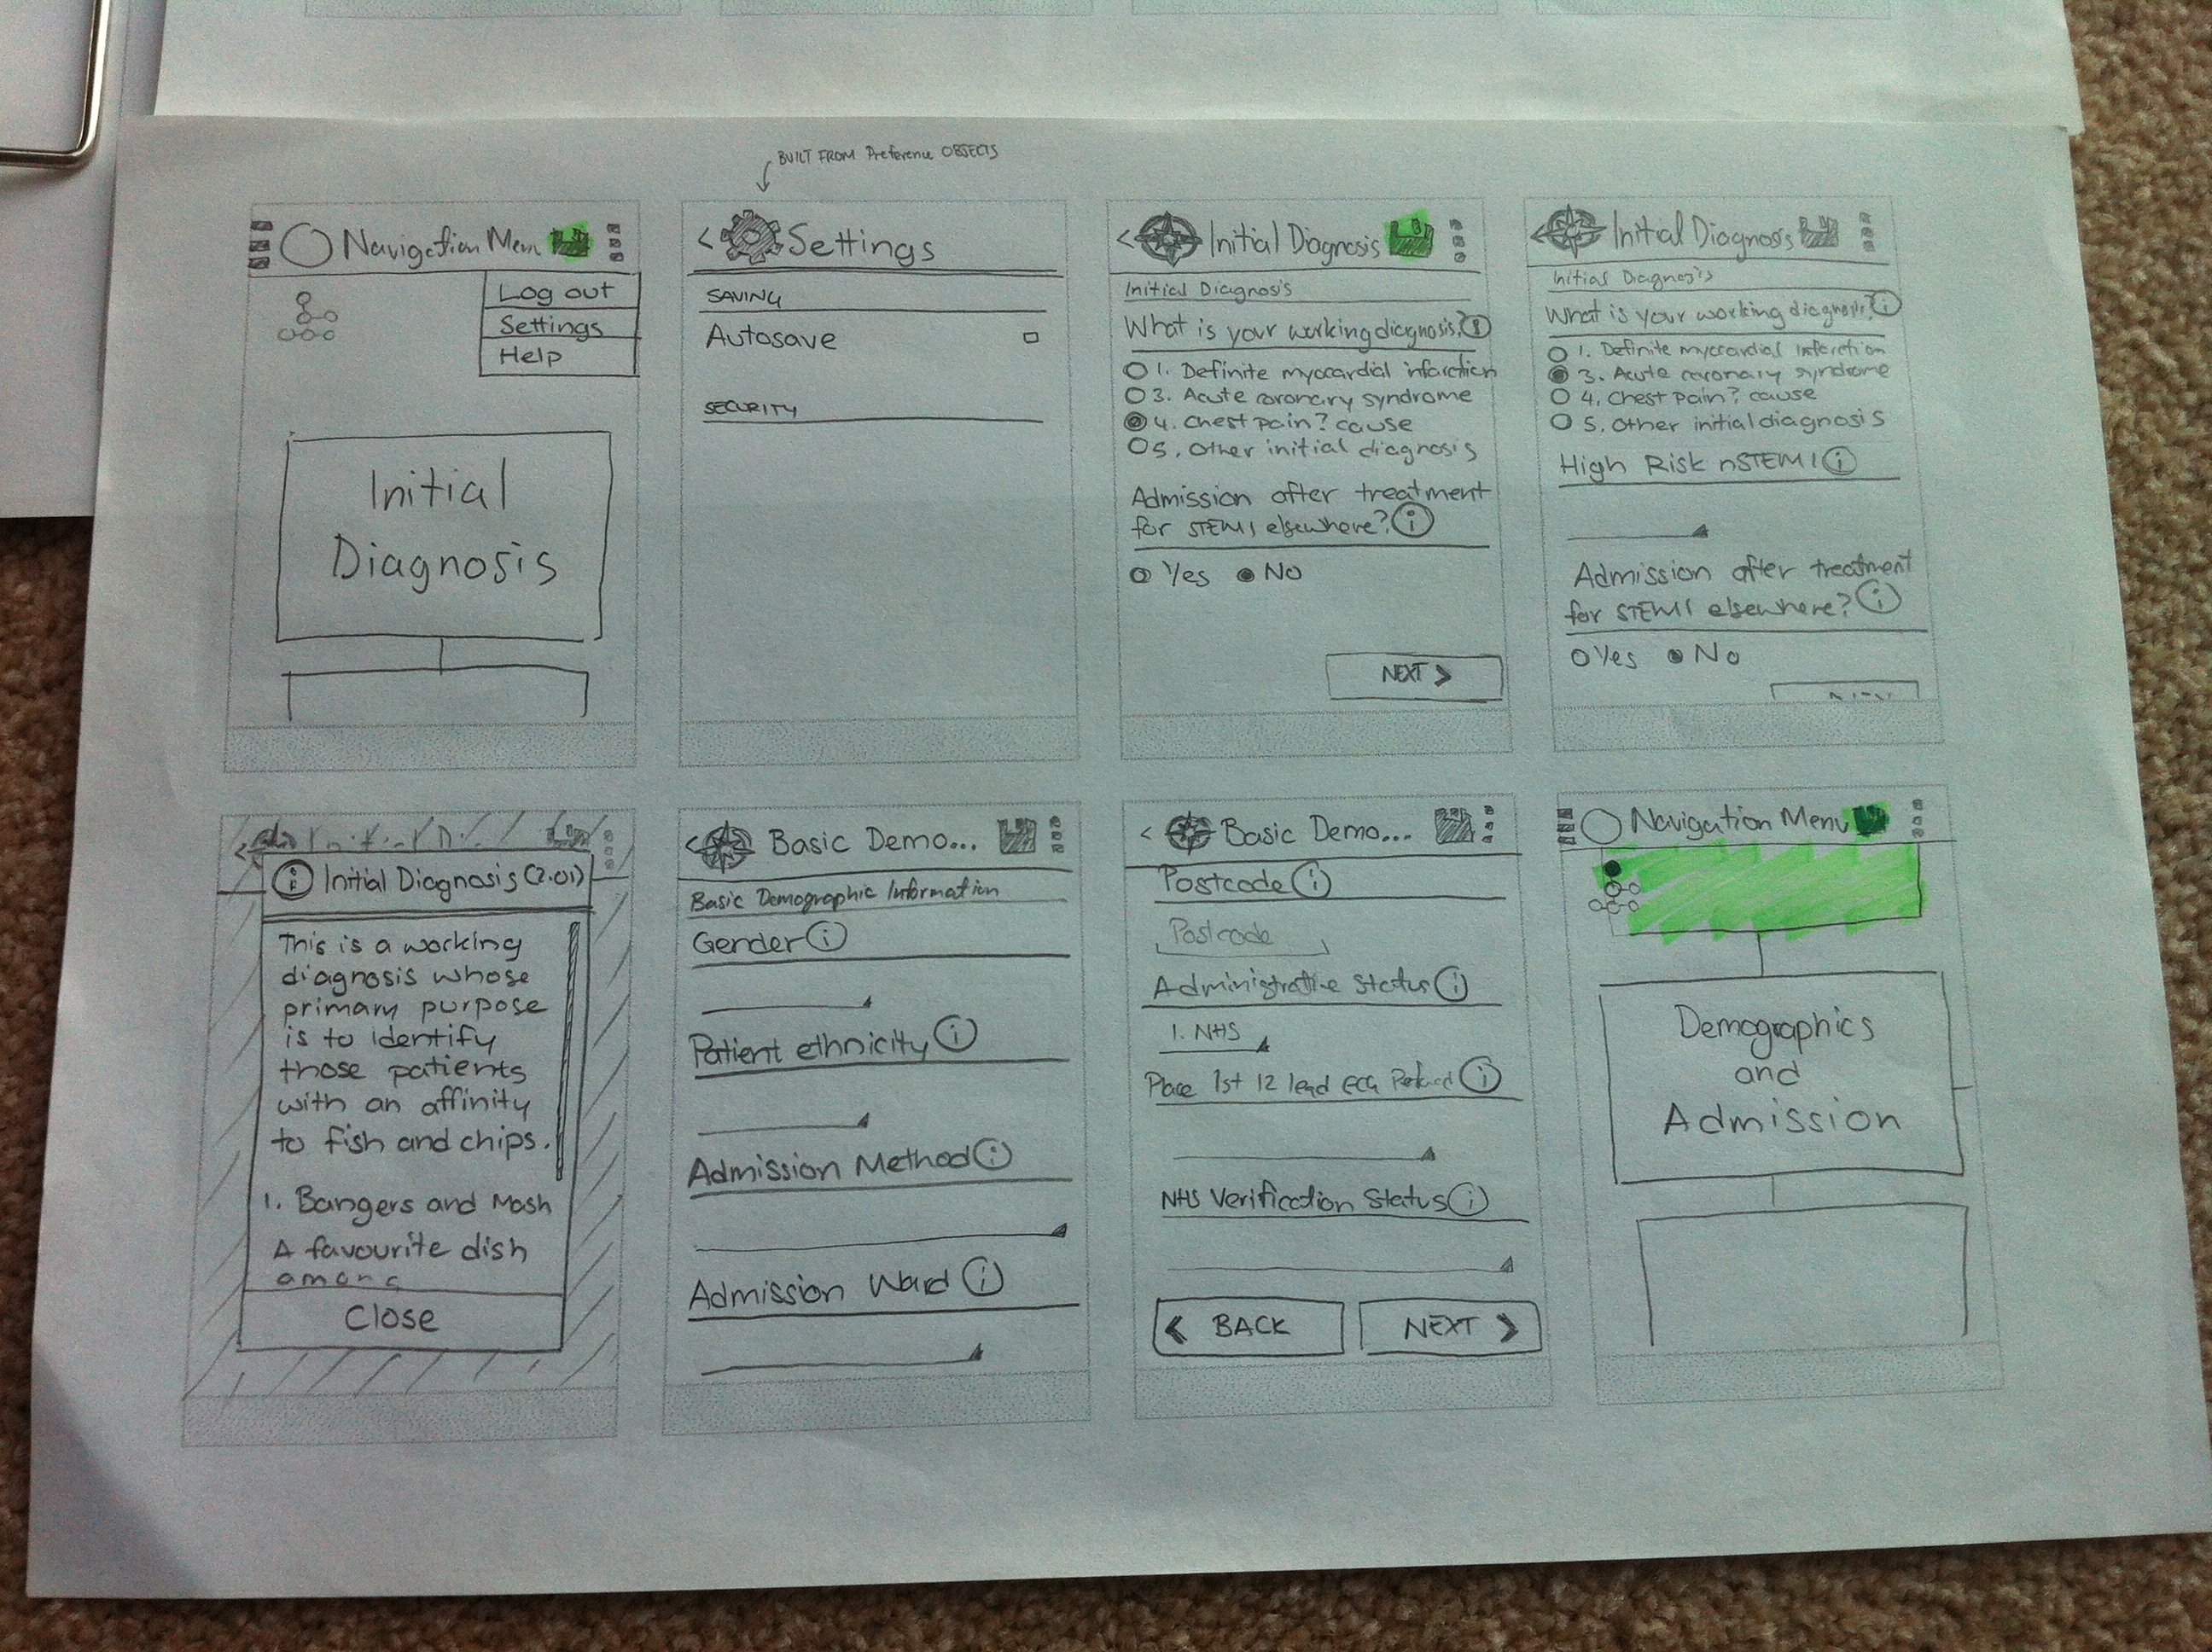 BUILT FROM Preference OBJECTS
Navigation Menu
Log out
Settings
Help
Initial
Diagnosis
Settings
SAVING
Autosave
SECURITY
Initial Diagnosis
Initial Diagnosis
What is your working diagnosis?
1. Definite myocardial infarction
3. Acute coronary syndrome
4. Chest pain? cause
5. Other initial diagnosis
Admission after treatment
for STEMI elsewhere? i
Yes No
NEXT >
Initial Diagnosis
Initial Diagnosis
What is your working diagnosis? i
1. Definite myocardial infarction
3. Acute coronary syndrome
4. Chest pain? cause
5. Other initial diagnosis
High Risk nSTEMI i
Admission after treatment
for STEMI elsewhere? i
Yes No
i Initial Diagnosis (2.01)
This is a working
diagnosis whose
primary purpose
is to identify
those patients
with an affinity
to fish and chips.
1. Bangers and Mash
A favourite dish
among
Close
< Basic Demo...
Basic Demographic Information
Gender i
Patient ethnicity i
Admission Method i
Admission Ward i
< Basic Demo...
Postcode i
Postcode
Administrative Status i
1. NHS
Place 1st 12 lead ECG i
NHS Verification Status i
< BACK
NEXT >
Navigation Menu
Demographics
and
Admission